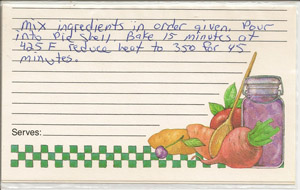 Mix ingredients in order given. Pour
into Pie Shell. Bake 15 minutes at
425 F reduce heat to 350 for 45
minutes.
Serves: